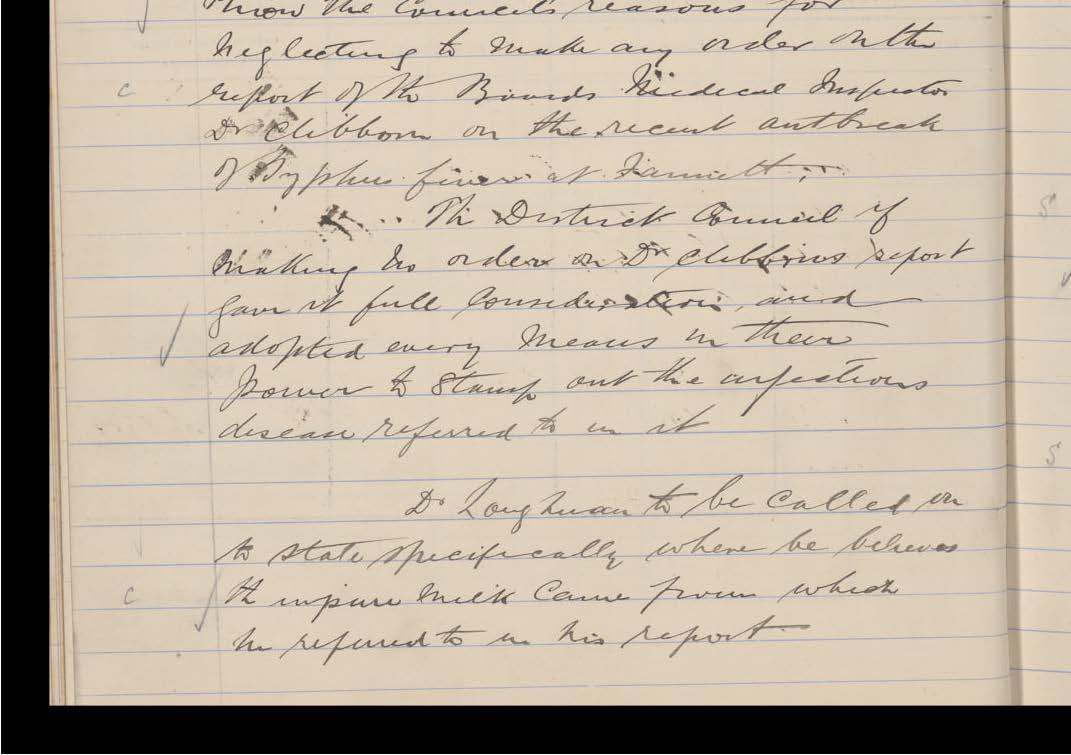 know the Council's reasons for
neglecting to make any order on the
c report of the Boards Medical Inspector
Dr Clibborn on the recent outbreak
of Typhus fever at
The District Council if
making no order on Dr Clibborns report
gave it full Consideration, and
adopted every means in their
power to Stamp out the infectious
disease referred to in it
Dr Loughnan to be called on
to state specifically where he believes
c th impure Milk Came from which
he referred to in his report